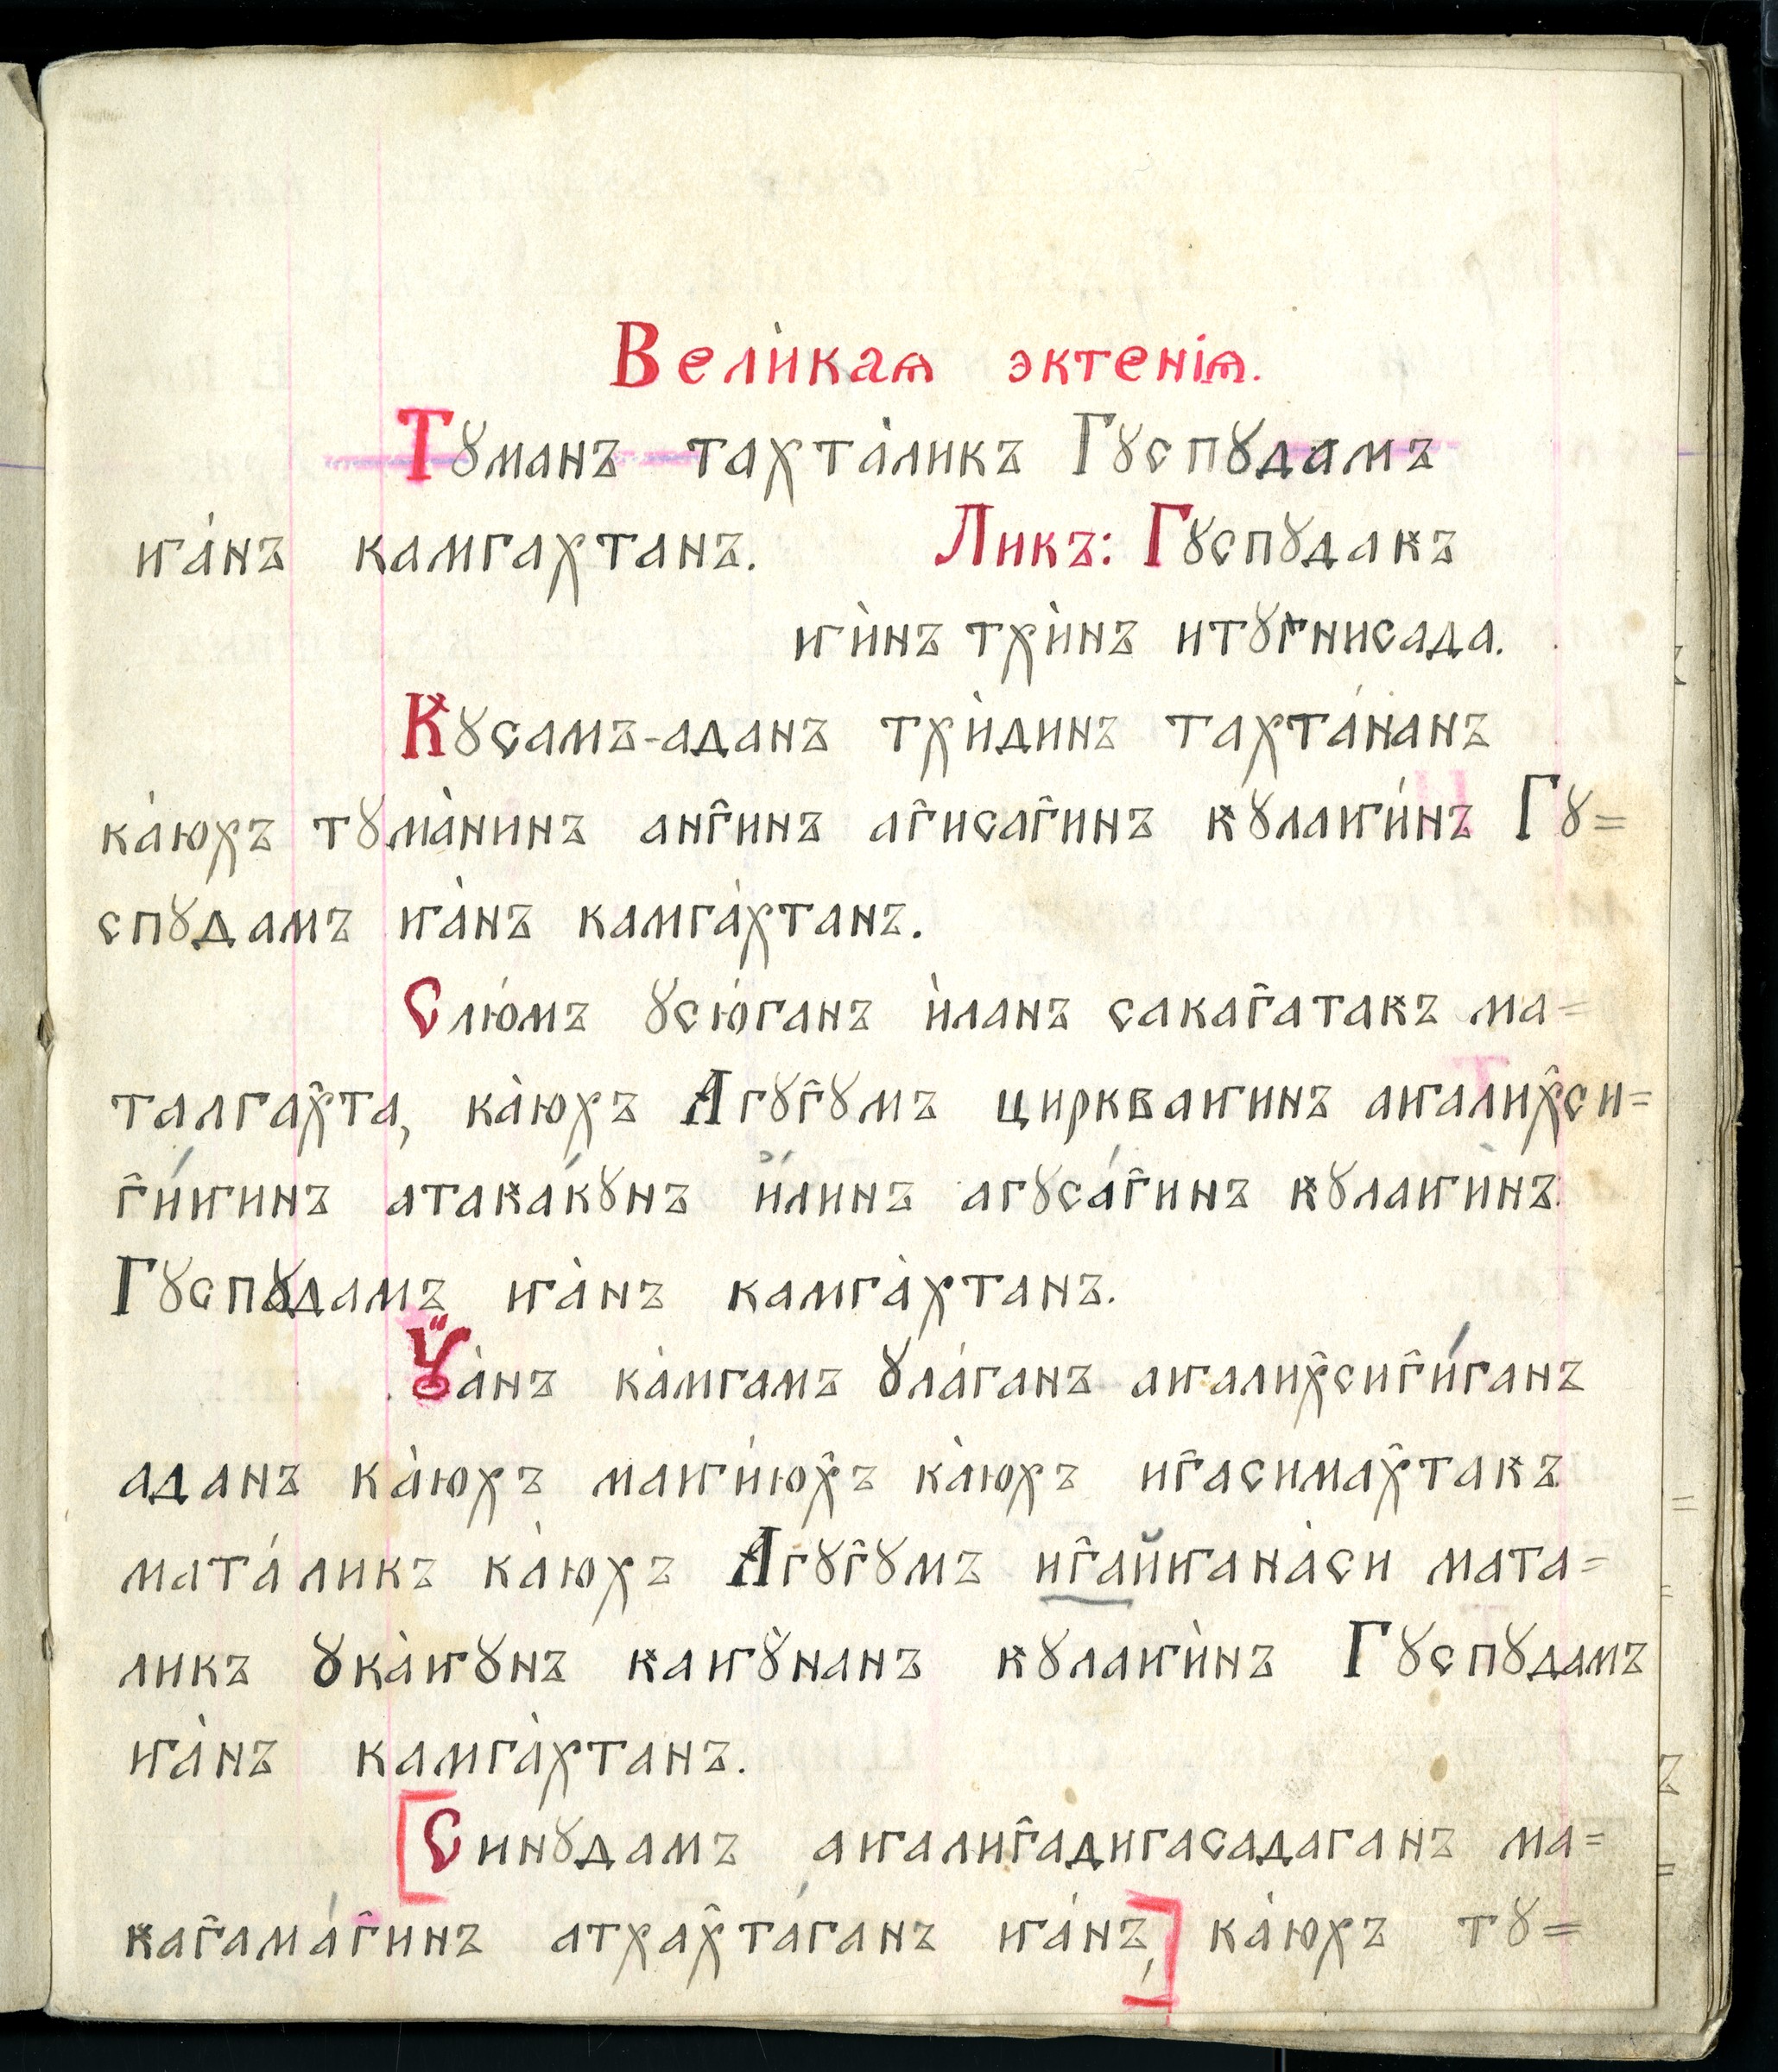 Вели́каѧ эктенїѧ.
Тꙋманъ тахта́ликъ Гꙋспꙋдамъ
ҥа́нъ камгахтанъ. Ликъ: Гꙋспꙋдаԟъ
ҥи́нъ тхи́нъ итꙋг̑нисада.
Ԟꙋсамъ-аданъ тхи́динъ тахта́нанъ
ка́юхъ тꙋма́нинъ анг̑инъ аг̑исаг̑инъ ԟꙋлаҥи́нъ Гꙋ=
спꙋдамъ ҥа́нъ камга́хтанъ.
Слю́мъ ꙋсю́ганъ и́ланъ сакаг̑атаԟъ ма=
талгах̑та, ка́юхъ Агꙋг̑ꙋмъ циркваҥинъ аҥалих̑си=
г̑и́ҥинъ атаԟа́кꙋнъ и́линъ агꙋса́г̑инъ ԟꙋлаҥи́нъ
Гꙋспꙋдамъ ҥа́нъ камга́хтанъ.
Ꙋа́нъ ка́мгамъ ꙋла́ганъ аҥалих̑сиг̑и́ганъ
аданъ ка́юхъ маҥи́юх̑ъ ка́юхъ иг̑асимах̑таԟъ
мата́ликъ ка́юхъ Агꙋг̑ꙋмъ иг̑айҥана́си мата=
ликъ ꙋка́ҥꙋнъ ԟаҥꙋ́нанъ ԟꙋлаҥи́нъ Гꙋспꙋдамъ
ҥа́нъ камга́хтанъ.
[Синꙋдамъ аҥалиг̑адигасадаганъ ма=
ԟаг̑ама́г̑инъ атхах̑та́ганъ ҥа́нъ,] ка́юхъ тꙋ=